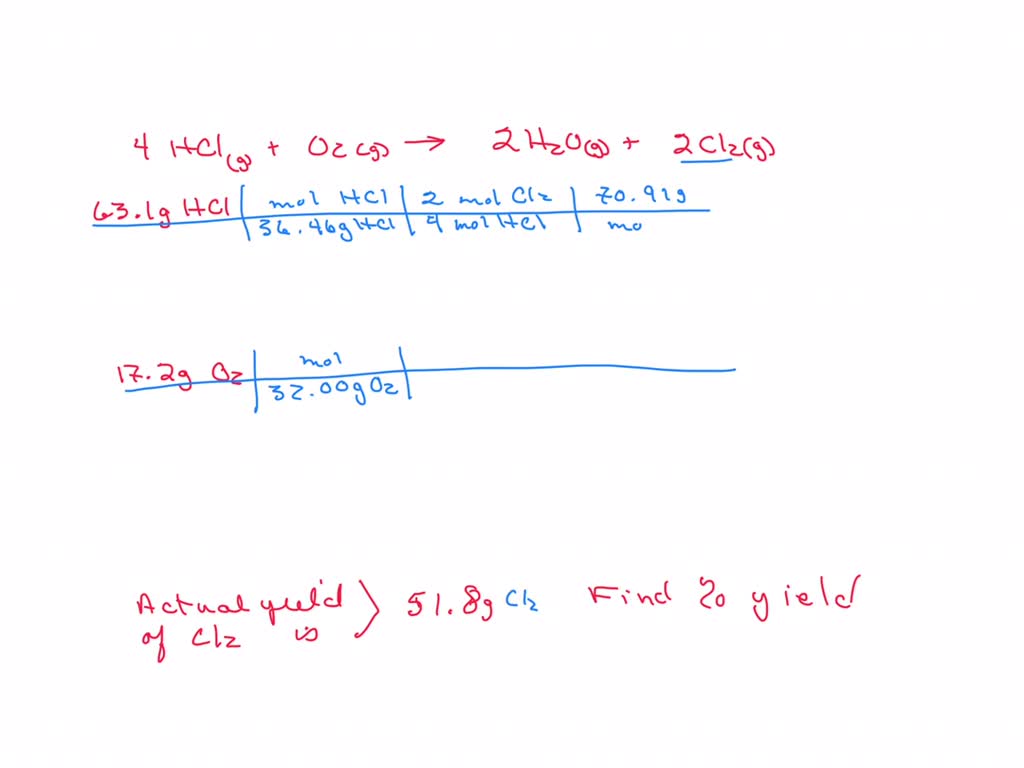 4 HCl(g) + O2(g) → 2H2O(g) + 2Cl2(g)
63.1g HCl | mol HCl | 2 mol Cl2 | 70.91g
36.46g HCl | 4 mol HCl | mo
17.2g O2 | mol
32.00g O2
Actual yield of Cl2 is } 51.8g Cl2 Find % yield